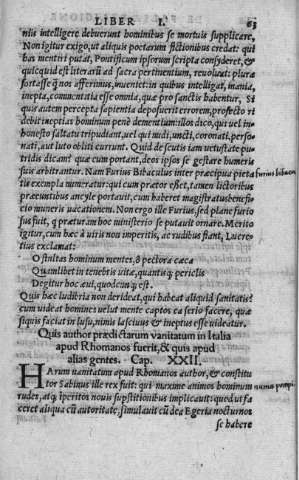 LIBER I. 63
niis intelligere debuerunt hominibus se mortuis supplicare.
Non igitur exigo, ut aliquis poëtarum fictionibus credat: qui
has mentiri putat, Pontificum ipsorum scripta consyderet, &
quicquid est literarũ ad sacra pertinentium, reuoluat: plura
fortasse q̃ nos afferimus, inueniet: in quibus intelligat, inania,
inepta, commentitia esse omnia, quæ pro sanctis habentur. Si
quis autem percepta sapientia deposuerit errorem, profecto ri
debit ineptias hominum penè dementium: illos dico, qui uel in
honesto saltatu tripudiant, uel qui nudi, uncti, coronati, perso-
nati, aut luto obliti currunt. Quid de scutis iam uetustate pu-
tridis dicam? quæ cum portant, deos ipsos se gestare humeris
suis arbitrantur. Nam Furius Bibaculus inter præcipua pieta furius bibacu
tis exempla numeratur: qui cum prætor esset, tamen lictoribus
præeuntibus ancyle portauit, cum haberet magistratus benefi-
cio muneris uacationem. Non ergo ille Furius, sed plane furio
sus fuit, q præturam hoc ministerio se putauit ornare. Merito
igitur, cum hæc à uiris non imperitis, ac rudibus fiant, Lucre-
tius exclamat:
O stultas hominum mentes, & pectora cæca
Qualibet in tenebris uitæ, quantisq; periclis
Degitur hoc æui, quodcunq; est.
Quis hæc ludibria non derideat, qui habeat aliquid sanitatis?
cum uideat homines uelut mente captos ea serio facere, quæ
siquis faciat in lusu, nimis lasciuus & ineptus esse uideatur.
Quis author prædictarum uanitatum in Italia
apud Rhomanos fuerit, & quis apud
alias gentes. Cap. XXII.
HArum uanitatum apud Rhomanos author, & constitu
tor Sabinus ille rex fuit: qui maxime animos hominum numa pompi.
rudes, atq; iperitos nouis supstitionibus implicauit: quod ut fa
ceret aliqua cũ autoritate, simulauit cũ dea Egeria nocturnos
se habere